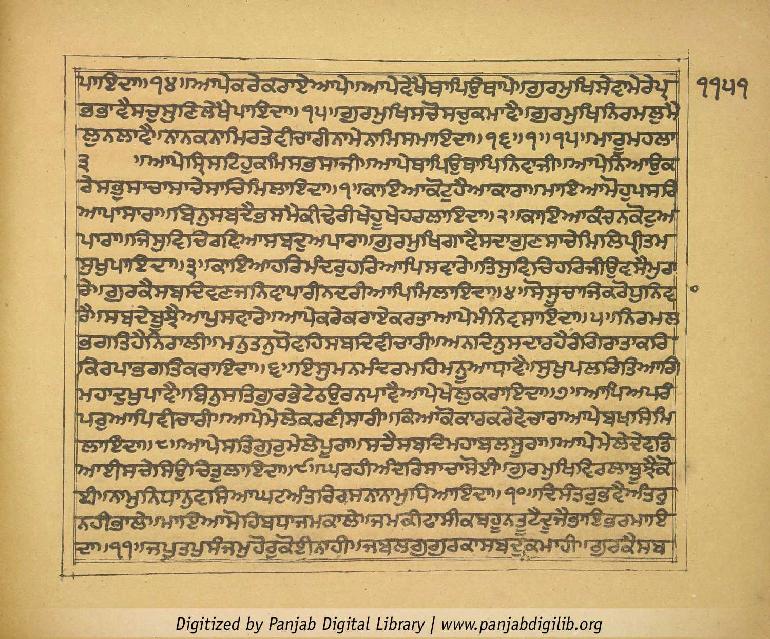 ਪਾਇਦਾ॥੧੪॥ਆਪੇਕਰੇਕਰਾਏਆਪੇ॥ਆਪੇਦੇਖੈਥਾਪਿਉਥਾਪੇ॥ਗੁਰਮੁਖਿਸੇਵਾਮੇਰੇਪ੍ਰ
੧੧੫੧
ਭਭਾਵੈਸਚੁਸੁਣਿਲੇਖੈਪਾਇਦਾ॥੧੫॥ਗੁਰਮੁਖਿਸਚੋਸਚੁਕਮਾਵੈ॥ਗੁਰਮੁਖਿਨਿਰਮਲੁਮੈ
ਲੁਨਲਾਵੈ॥ਨਾਨਕਨਾਮਿਰਤੇਵੀਚਾਰੀਨਾਮੇਨਾਮਿਸਮਾਇਦਾ॥੧੬॥੧॥੧੫॥ਮਾਰੂਮਹਲਾ
੩ ॥ਆਪੇਸ੍ਰਿਸਟਿਹੁਕਮਿਸਭਸਾਜੀ॥ਆਪੇਥਾਪਿਉਥਾਪਿਨਿਵਾਜੀ॥ਆਪੇਨਿਆਉਕ
ਰੇਸਭੁਸਾਚਾਸਾਚੇਸਾਚਿਮਿਲਾਇਦਾ॥੧॥ਕਾਇਆਕੋਟੁਹੈਆਕਾਰਾ॥ਮਾਇਆਮੋਹੁਪਸਰਿ
ਆਪਾਸਾਰਾ॥ਬਿਨੁਸਬਦੈਭਸਮੈਕੀਢੇਰੀਖੇਹੂਖੇਹਰਲਾਇਦਾ॥੨॥ਕਾਇਆਕੰਚਨਕੋਟੁਅ
ਪਾਰਾ॥ਜਿਸੁਵਿਚਿਰਵਿਆਸਬਦੁਅਪਾਰਾ॥ਗੁਰਮੁਖਿਗਾਵੈਸਦਾਗੁਣਸਾਚੇਮਿਲਿਪ੍ਰੀਤਮ
ਸੁਖੁਪਾਇਦਾ॥੩॥ਕਾਇਆਹਰਿਮੰਦਰੁਹਰਿਆਪਿਸਵਾਰੇ॥ਤਿਸੁਵਿਚਿਹਰਿਜੀਉਵਸੈਮੁਰਾ
ਰੇ॥ਗੁਰਕੈਸਬਦਿਵਣਜਨਿਵਾਪਾਰੀਨਦਰੀਆਪਿਮਿਲਾਇਦਾ॥੪॥ਸੋਸੂਚਾਜਿਕਰੋਧੁਨਿਵਾ
ਰੇ॥ਸਬਦੇਬੂਝੈਆਪੁਸਵਾਰੇ॥ਆਪੇਕਰੇਕਰਾਏਕਰਤਾਆਪੇਮੰਨਿਵਸਾਇਦਾ॥੫॥ਨਿਰਮਲ
ਭਗਤਿਹੈਨਿਰਾਲੀ॥ਮਨੁਤਨੁਧੋਵਹਿਸਬਦਿਵੀਚਾਰੀ॥ਅਨਦਿਨੁਸਦਾਰਹੈਰੰਗਿਰਾਤਾਕਰਿ
ਕਿਰਪਾਭਗਤਿਕਰਾਇਦਾ॥੬॥ਇਸੁਮਨਮੰਦਰਮਹਿਮਨੂਆਧਾਵੈ॥ਸੁਖੁਪਲਰਿਤਿਆਗਿ
ਮਹਾਦੁਖੁਪਾਵੈ॥ਬਿਨੁਸਤਿਗੁਰਭੇਟੇਠਉਰਨਪਾਵੈਆਪੇਖੇਲੁਕਰਾਇਦਾ॥੭॥ਆਪਿਅਪਰੰ
ਪਰੁਆਪਿਵੀਚਾਰੀ॥ਆਪੇਮੇਲੇਕਰਣੀਸਾਰੀ॥ਕਿਆਕੋਕਾਰਕਰੇਵੇਚਾਰਾਆਪੇਬਖਸਿਮਿ
ਲਾਇਦਾ॥੮॥ਆਪੇਸਤਿਗੁਰੁਮੇਲੇਪੂਰਾ॥ਸਚੈਸਬਦਿਮਹਾਬਲਸੂਰਾ॥ਆਪੇਮੇਲੇਦੇਵਡਿ
ਆਈਸਚੇਸਿਉਚਿਤੁਲਾਇਦਾ॥੯॥ਘਰਹੀਅੰਦਰਿਸਾਚਾਸੋਈ॥ਗੁਰਮੁਖਿਵਿਰਲਾਬੂਝੈਕੋ
ਈ॥ਨਾਮੁਨਿਧਾਨੁਵਸਿਆਘਟਅੰਤਰਿਰਸਨਾਨਾਮੁਧਿਆਇਦਾ॥੧੦॥ਦਿਸੰਤਰੁਭਵੈਅੰਤਰੁ
ਨਹੀਭਾਲੇ॥ਮਾਇਆਮੋਹਿਬਧਾਜਮਕਾਲੇ॥ਜਮਕੀਫਾਸੀਕਬਹੂਨਤੂਟੈਦੂਜੈਭਾਇਭਰਮਾਇ
ਦਾ॥੧੧॥ਜਪੁਤਪੁਸੰਜਮੁਹੋਰੁਕੋਈਨਾਹੀ॥ਜਬਲਗੁਗੁਰਕਾਸਬਦੁਨਕਮਾਹੀ॥ਗੁਰਕੈਸਬ
Digitized by Panjab Digital Library | www.panjabdigilib.org